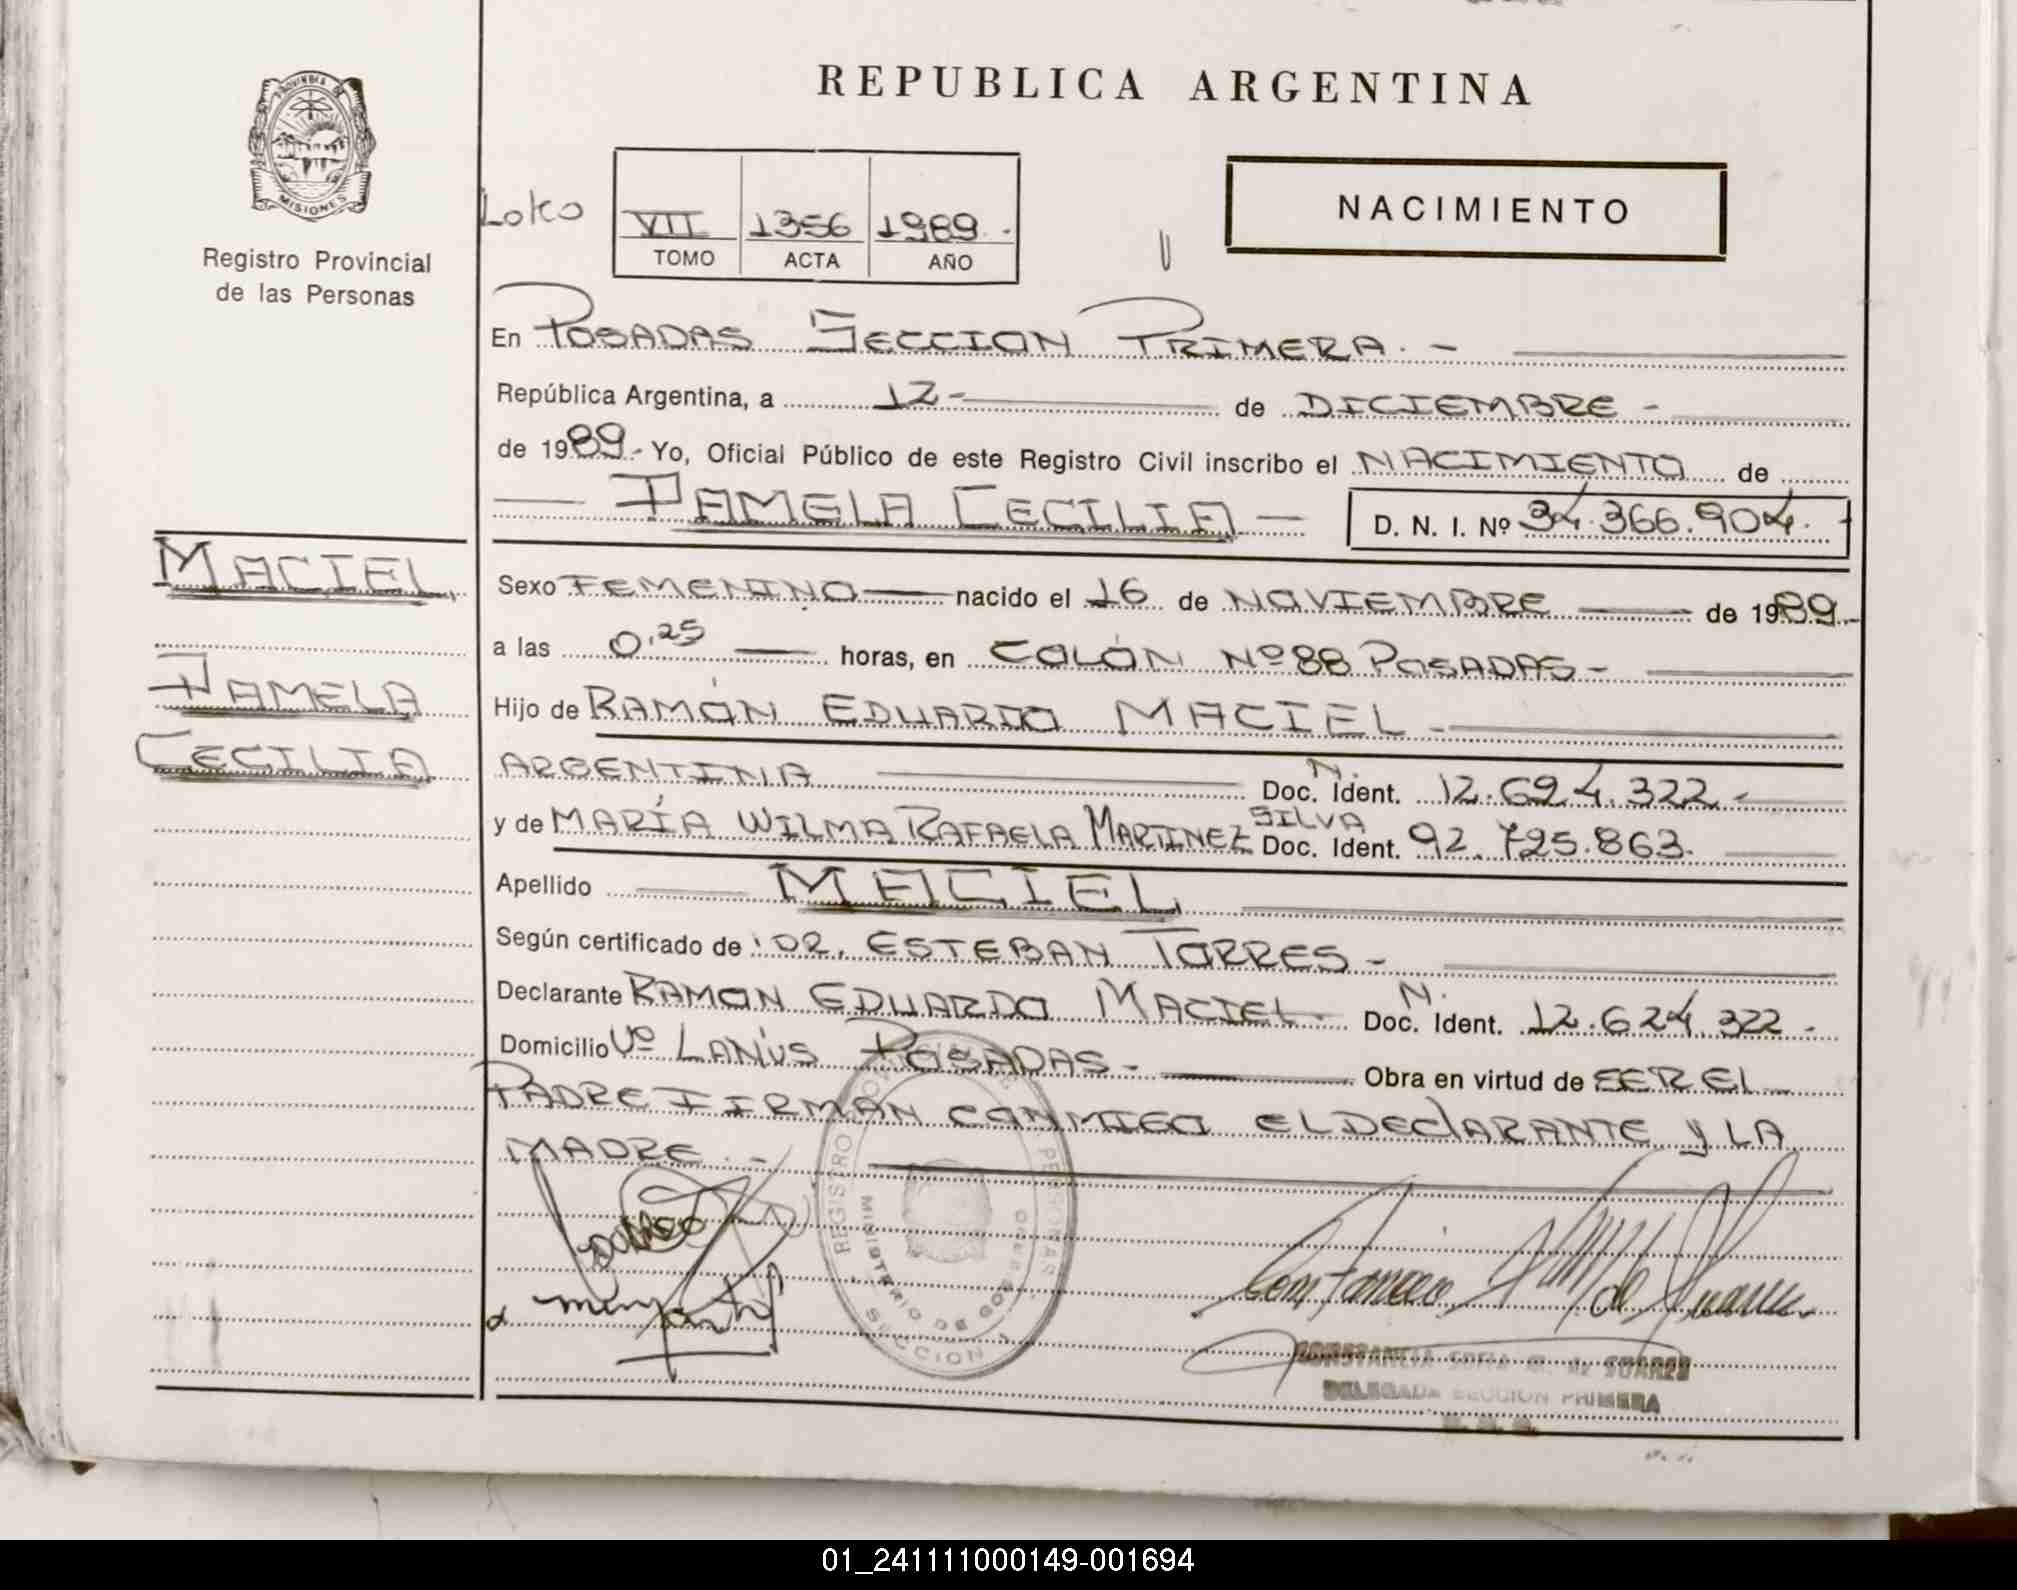 REPUBLICA ARGENTINA
PROVINCIA DE MISIONES
Registro Provincial
de las Personas
Loko
VII 1356 1989.-
TOMO ACTA AÑO
NACIMIENTO
En POSADAS SECCION PRIMERA.-
República Argentina, a 12- de DICIEMBRE-
de 1989.- Yo, Oficial Público de este Registro Civil inscribo el NACIMIENTO de
PAMELA CECILIA- D. N. I. Nº 34.366.904.-
MACIEL
PAMELA
CECILIA
Sexo FEMENINO nacido el 16 de NOVIEMBRE de 1989.-
a las 0,25 horas, en COLÓN Nº 88 POSADAS-
Hijo de RAMÓN EDUARDO MACIEL-
ARGENTINA Doc. N. Ident. 12.694.322-
y de MARÍA WILMA RAFAELA MARTINEZ SILVA Doc. Ident. 92.725.863.
Apellido MACIEL
Según certificado de: DR. ESTEBAN TORRES-
Declarante RAMON EDUARDO MACIEL. Doc. N. Ident. 12.624.322-
Domicilio Vº LANÚS POSADAS- Obra en virtud de SER EL
PADRE FIRMAN CONMIGO EL DEClARANTE y LA
MADRE.-
REGISTRO PROVINCIAL DE LAS PERSONAS
MINISTERIO DE GOBIERNO
SECCION 1
CONSTANCIA SOFIA de SUAREZ
DELEGADA SECCION PRIMERA
01_241111000149-001694